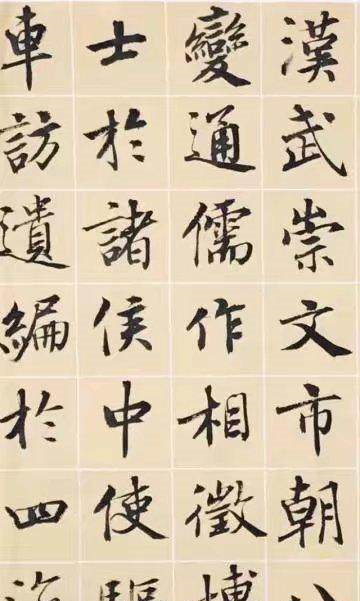 漢武崇文市朝八
變通儒作相徵博
士於諸侯中使驅
車訪遺編於四